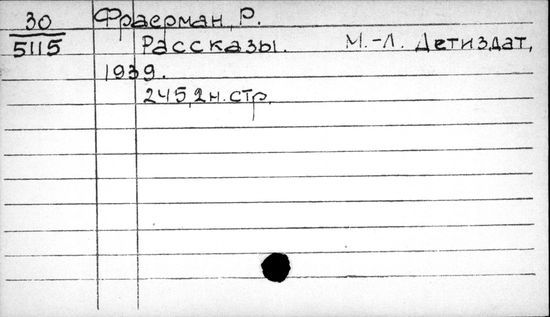 30 Фраерман, Р.
5115 Рассказы. М.-Л. Детиздат,
1939.
245,2н.стр.